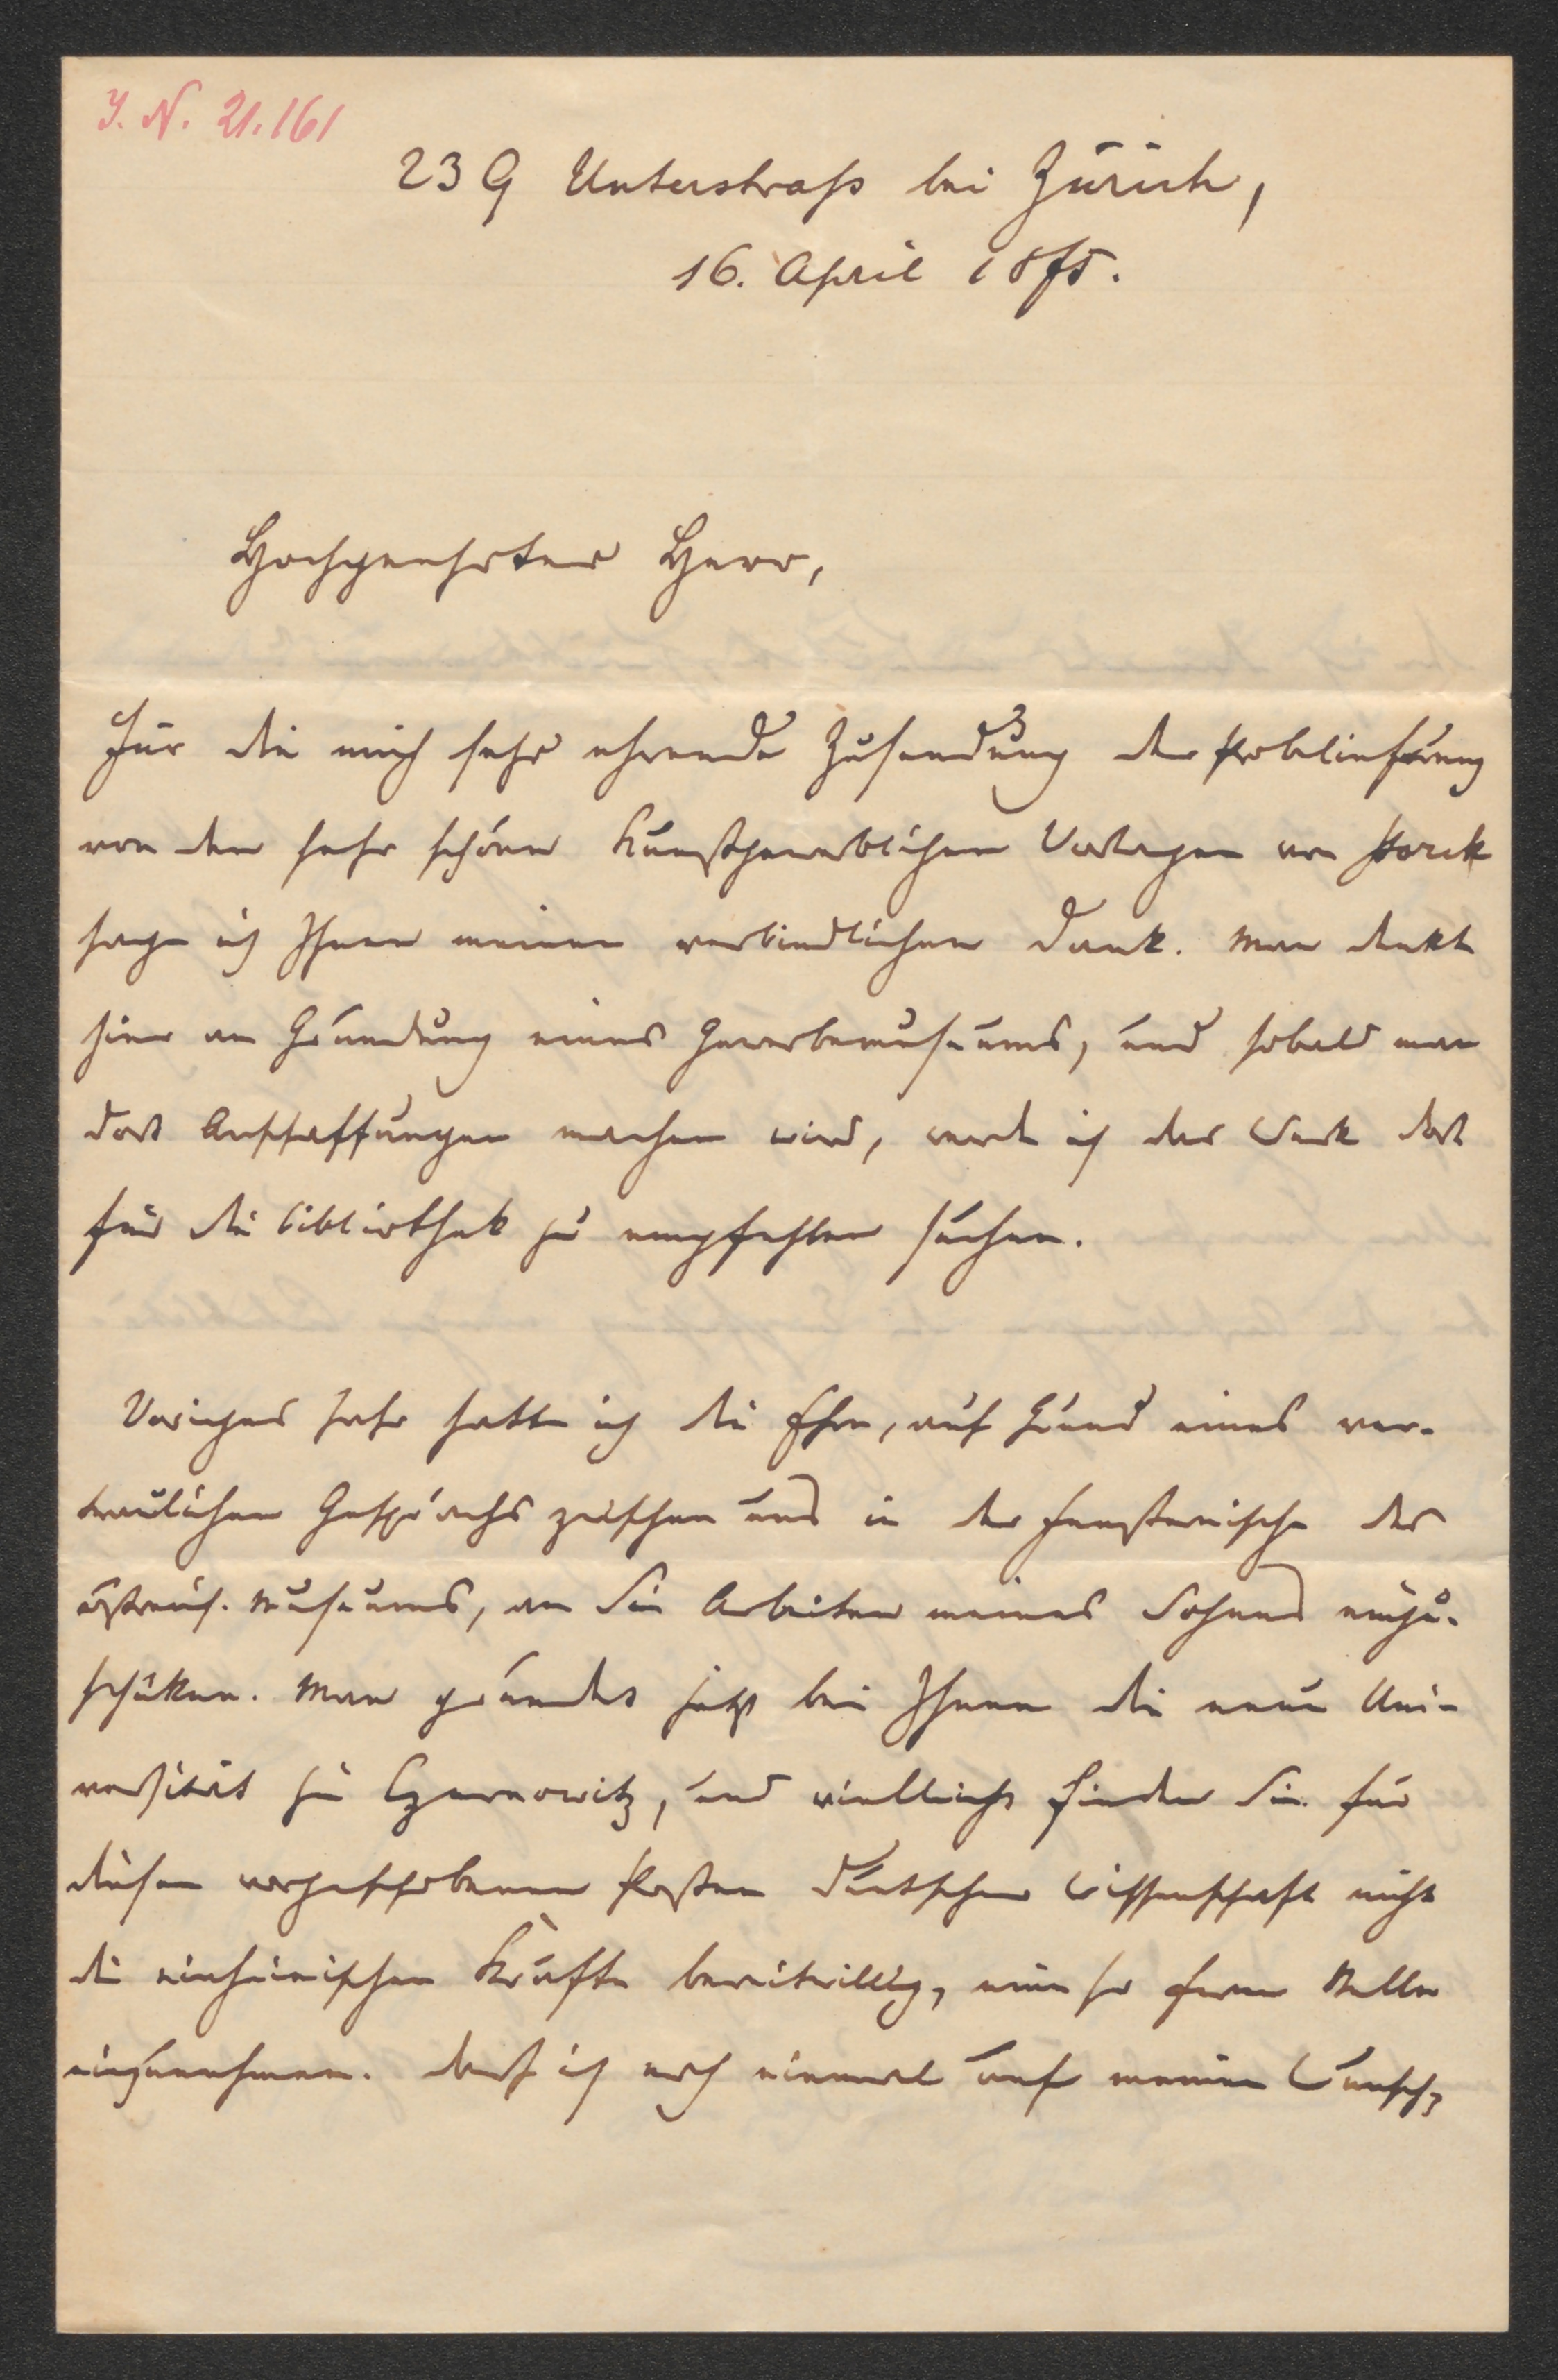 J. N. 21.161
23 G Unterstrass bei Zürich,
16. April 1875.
Hochgeehrter Herr,
Für die mich sehr ehrende Zusendung der Probelieferung
von den sehr schönen kunstgewerblichen Vorlagen von Storck
sage ich Ihnen meinen verbindlichen Dank. Man denkt
hier an Gründung eines Gewerbemuseums, und sobald man
dort Anschaffungen machen wird, werde ich das Werk dort
für die Bibliothek zu empfehlen suchen.
Voriges Jahr hatte ich die Ehre, auf Grund eines ver-
traulichen Gesprächs zwischen uns in der Fensternische des
östreich. Museums, an Sie Arbeiten meines Sohnes einzu-
schicken. Man gründet jetzt bei Ihnen die neue Uni-
versität zu Czernowitz, und vielleicht finden Sie für
diesen vorgeschobenen Posten deutscher Wissenschaft nicht
die einheimischen Kräfte bereitwillig, eine so ferne Stelle
einzunehmen. Darf ich noch einmal auf meinen Wunsch,